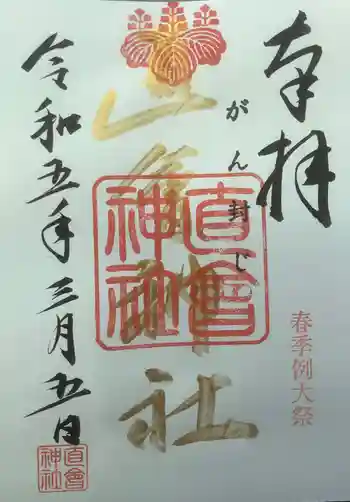 奉拝
春季例大祭
がん封じ
直會神社
直會
神社
令和五年三月五日
直會
神社